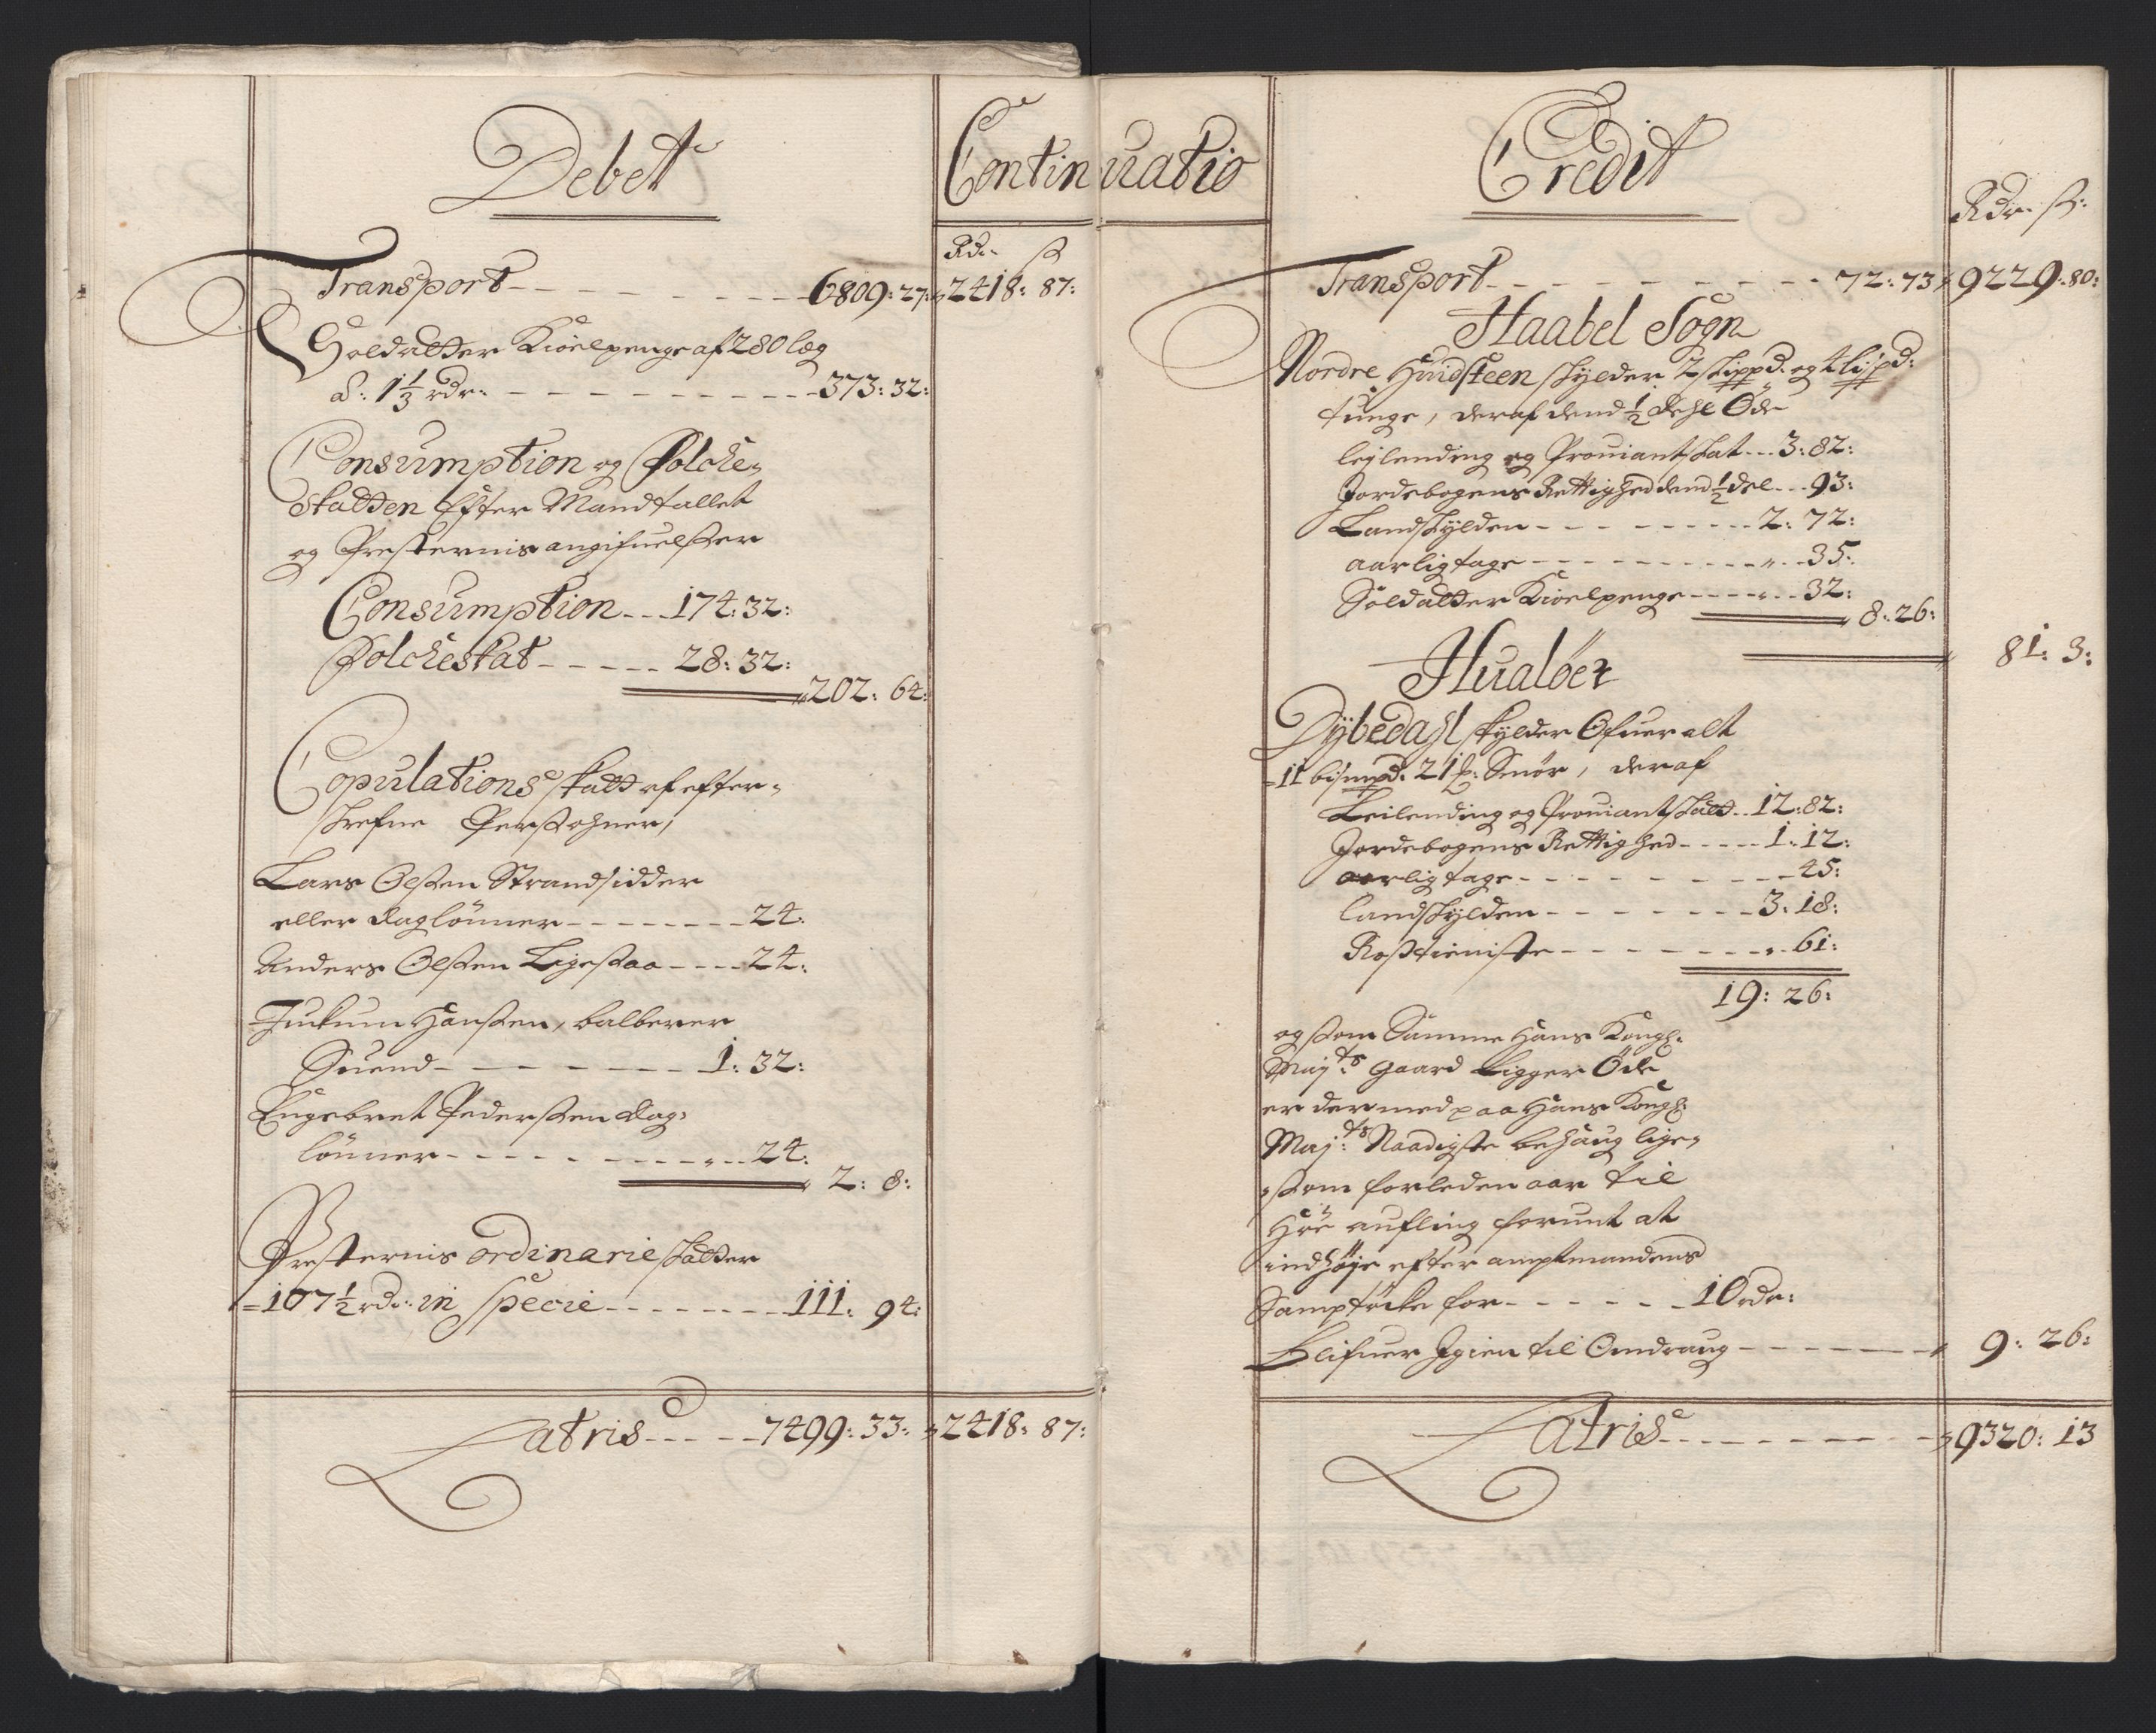 Debet
Continuatio
Rdr. ß
Transport 6809: 27: 2418: 87:
Soldatter Kiöelpenge af 280 læg
â: 1 1/3 rdr. 373: 32:
Consumption og Folche-
skatten Efter Mandtallet
og Presternis angifuelßer
Consumption 174: 32:
Folcheskat 28: 32:
202: 64:
Copulations skatt af efter-
skrefne Perßohner,
Lars Olßen Strandsidder
eller daglönner 24:
Anders Olßen Ligeßaa 24:
Jückum Hanßen, balberer
Suend 1: 32:
Engebret Pederßen dag-
lönner 24:
2: 8:
Presternis ordinarie skatter
107 1/2 rdr. in specie 111: 94:
Latris 7499: 33: 2418: 87:
Credit
Rdr. ß:
Transport 72: 73 9229: 80:
Haabel Sogn
Nordre Huidsteen skylder 2 skippd. og 4 lispd:
tunge, deraf dend 1/2 dehl Öde
leilending og Prouiantskat 3: 82:
Jordebogens Rettighed dend 1/2 del 93:
Landskylden 2: 72:
aarligtage 35:
Soldatter Kiöelpenge 32:
8: 26:
81: 3:
Hualöer
Dybedahl skylder Ofueralt
11 bismpd. 21 ℔: Smör, deraf
Leilending og Prouiantskatt 12: 82:
Jordebogens Rettighed 1: 12:
aarligtage 45:
landskylden 3: 18:
Roßtieniste 61:
19: 26:
og ßom Samme Hans Kongl.
Maj:ts gaard Ligger Öde
er dermed paa Hans Kongl:
Maj:ts Naadigste behaug lige-
ßom forleden aar til
Höe aufling forunt at
indhöje efter amptmandens
Samptöcke for 10 rdr:
Blifuer Igien til Omdraug 9: 26:
Latris 9320: 13